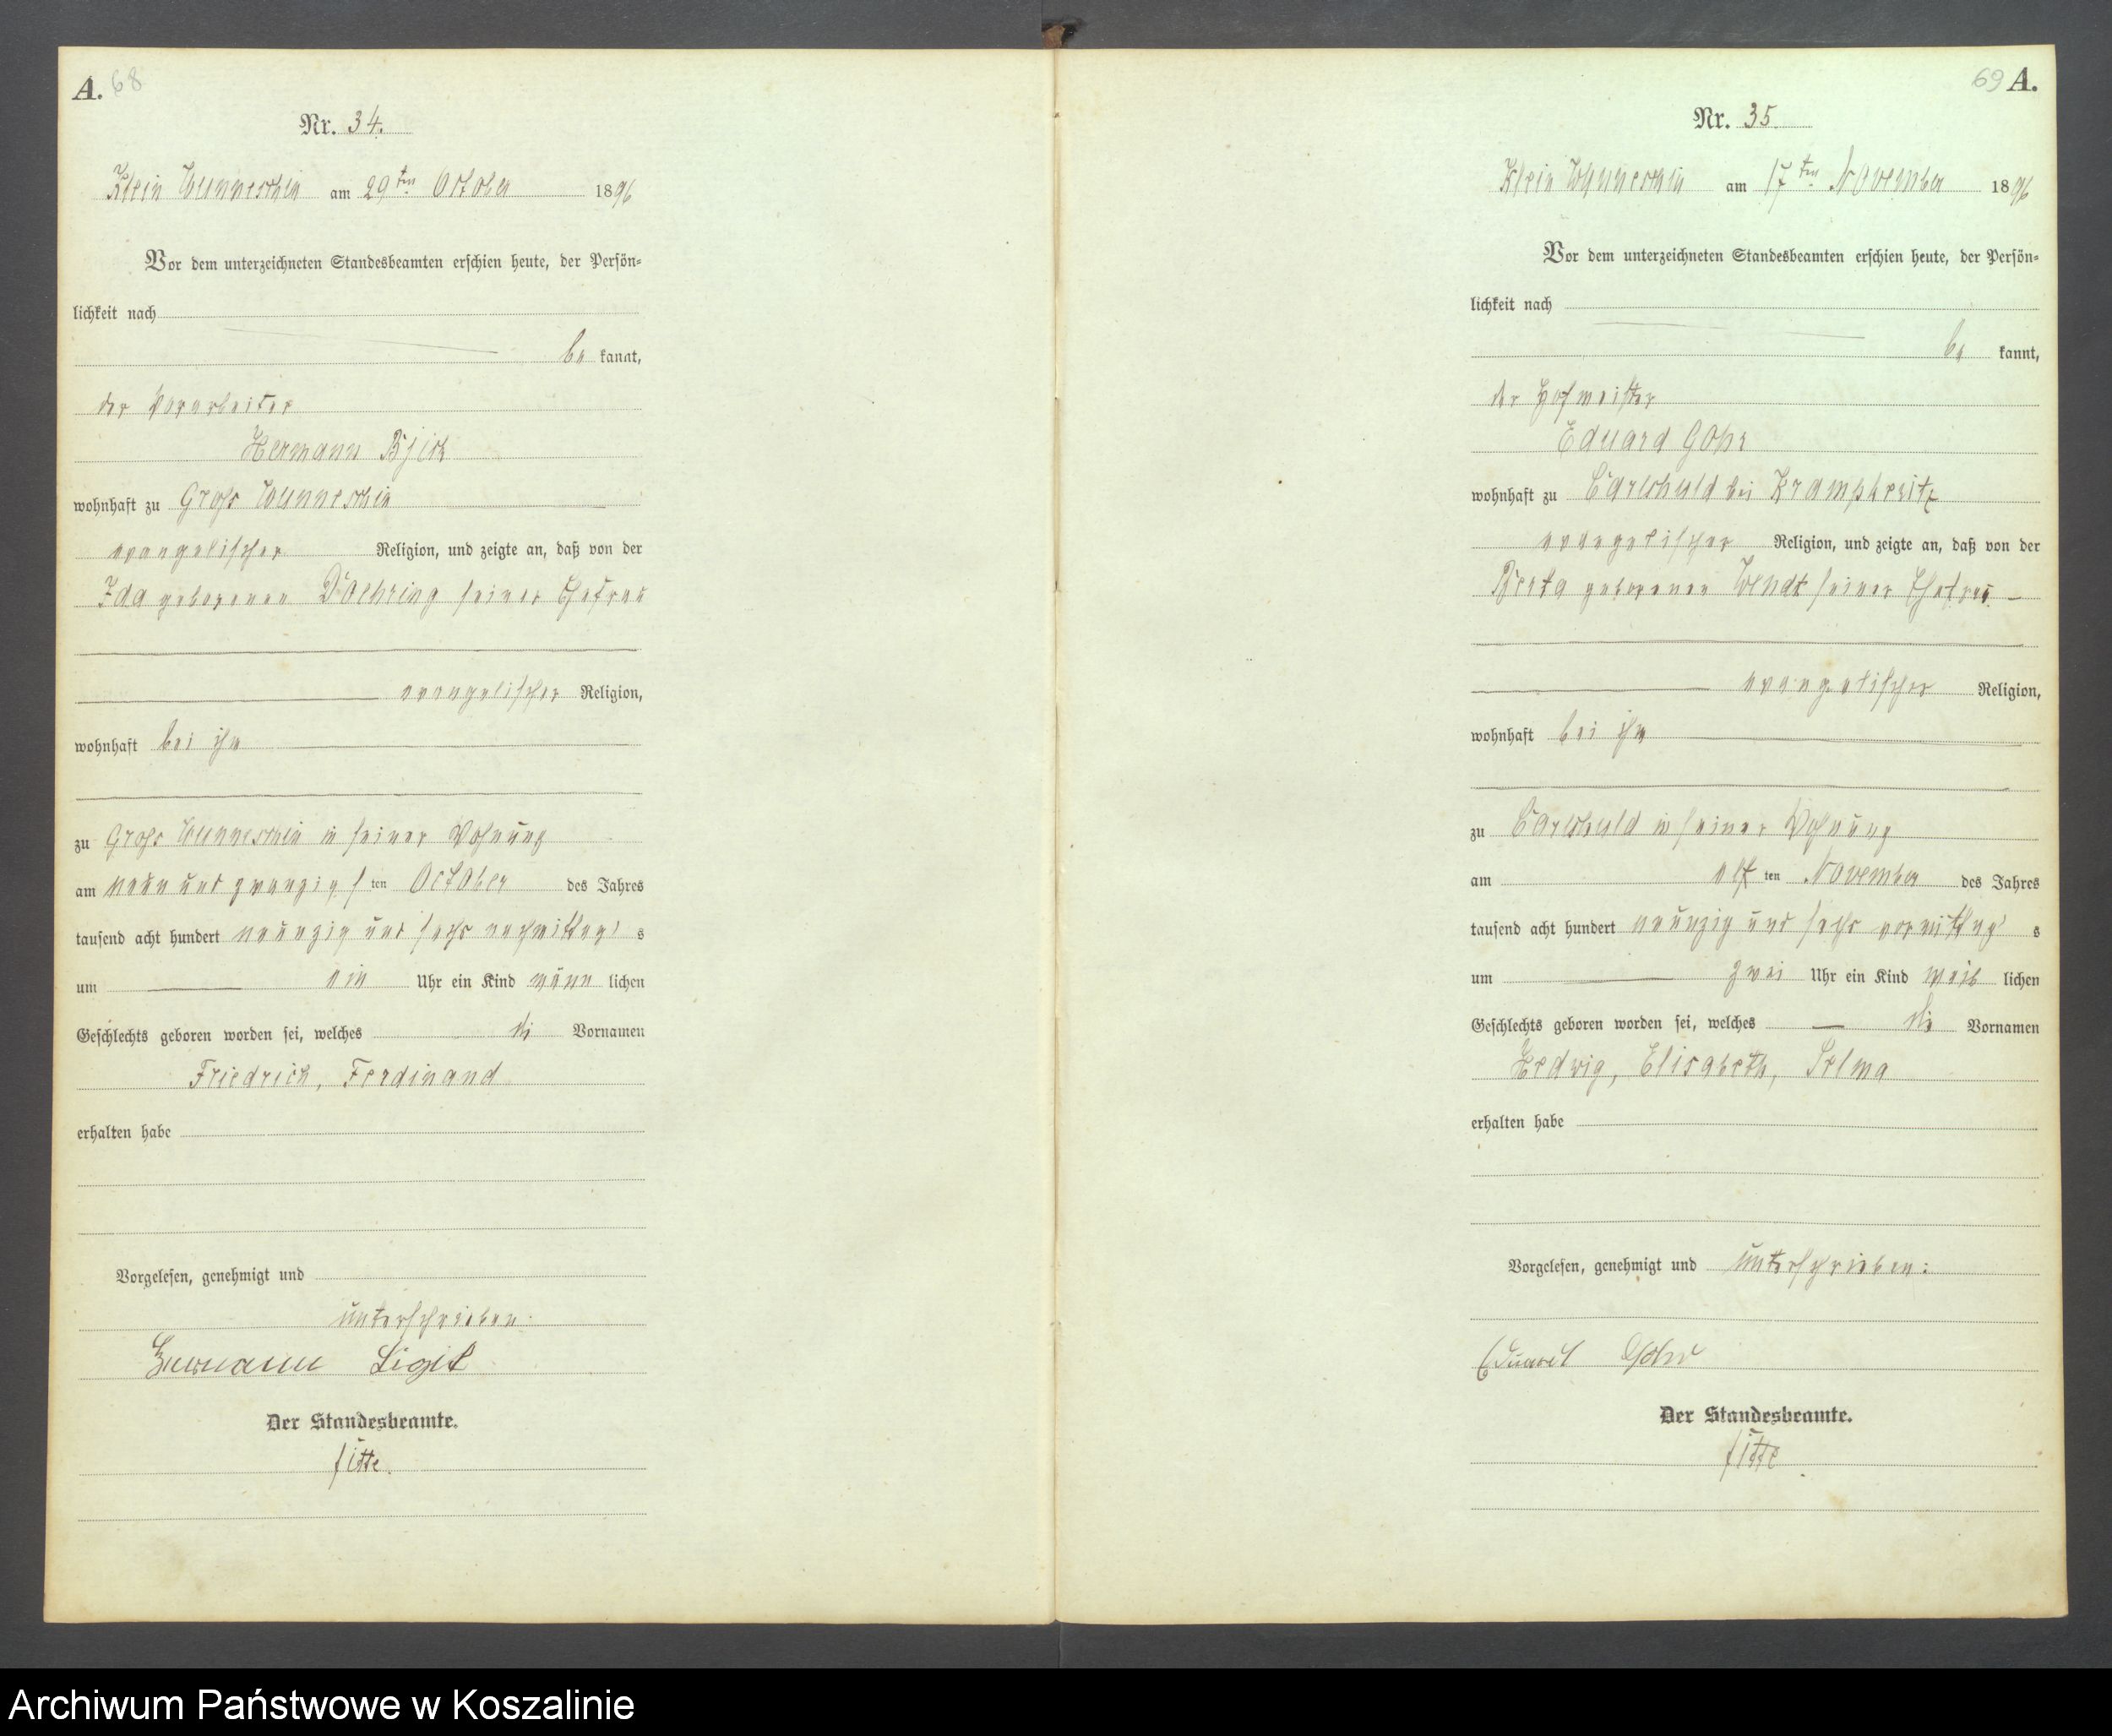 A. 68
Nr. 34.
Klein Wunneschin am 29ten October 1896
Vor dem unterzeichneten Standesbeamten erschien heute, der Persön-
lichkeit nach
be kannt,
der Vorarbeiter
Hermann
wohnhaft zu Gross Wunneschin
evangelischer Religion, und zeigte an, daß von der
Ida geborenen Doehring seiner Ehefrau
evangelischer Religion,
wohnhaft bei ihm
zu Gross Wunneschin in seiner Wohnung
am neun und zwanzigs ten October des Jahres
tausend acht hundert neunzig und sechs nachmittag s
um ein Uhr ein Kind männ lichen
Geschlechts geboren worden sei, welches die Vornamen
Friedrich, Ferdinand
erhalten habe
Vorgelesen, genehmigt und
unterschrieben.
Hermann
Der Standesbeamte.
69 A.
Nr. 35.
Klein Wunneschin am 17ten November 1896
Vor dem unterzeichneten Standesbeamten erschien heute, der Persön-
lichkeit nach
be kannt,
der Hofmeister
Eduard Gohr
wohnhaft zu Carlshuld bei Krampkewitz
evangelischer Religion, und zeigte an, daß von der
Berta geborenen Wendt seiner Ehefrau
evangelischer Religion,
wohnhaft bei ihm
zu Carlshuld in seiner Wohnung
am elf ten November des Jahres
tausend acht hundert neunzig und sechs vormittag s
um zwei Uhr ein Kind weib lichen
Geschlechts geboren worden sei, welches die Vornamen
Hedwig, Elisabeth, Selma
erhalten habe
Vorgelesen, genehmigt und unterschrieben:
Eduard Gohr
Der Standesbeamte.
Archiwum Państwowe w Koszalinie